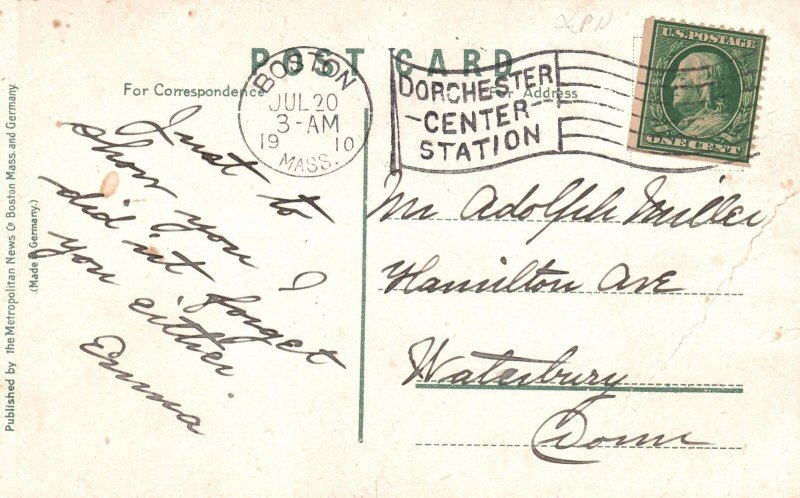 POST CARD
For Correspondence
For Address
BOSTON
JUL 20
3-AM
19 10
MASS.
DORCHESTER
-CENTER-
STATION
U.S. POSTAGE
ONE CENT
Just to
show you I
did n't forget
you either.
Emma
Mr Adolph Miller
Hamilton Ave
Waterbury
Conn
Published by the Metropolitan News Co Boston Mass. and Germany.
(Made in Germany.)